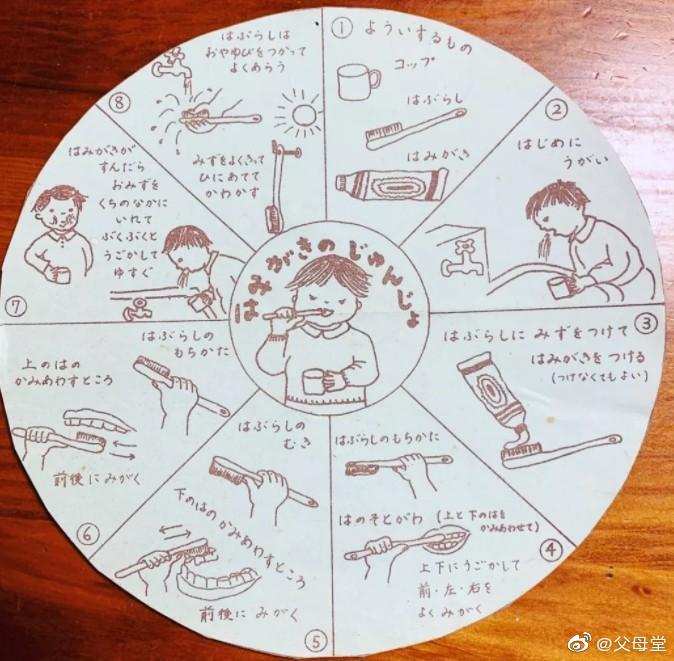 はみがきのじゅんじょ
① よういするもの
コップ
はぶらし
はみがき
②
はじめに
うがい
③
はぶらしに みずをつけて
はみがきをつける
(つけなくてもよい)
④
はぶらしのもちかた
はのそとがわ (上と下のはを
かみあわせて)
上下にうごかして
前・左・右を
よくみがく
⑤
はぶらしの
むき
下のはの かみあわすところ
前後に みがく
⑥
はぶらしの
もちかた
上のはの
かみあわすところ
前後にみがく
⑦
はみがきが
すんだら
おみずを
くちのなかに
いれて
ぶくぶくと
うごかして
ゆすぐ
⑧
はぶらしは
おやゆびをつかって
よくあらう
みずをよくきって
ひにあてて
かわかす
@父母堂